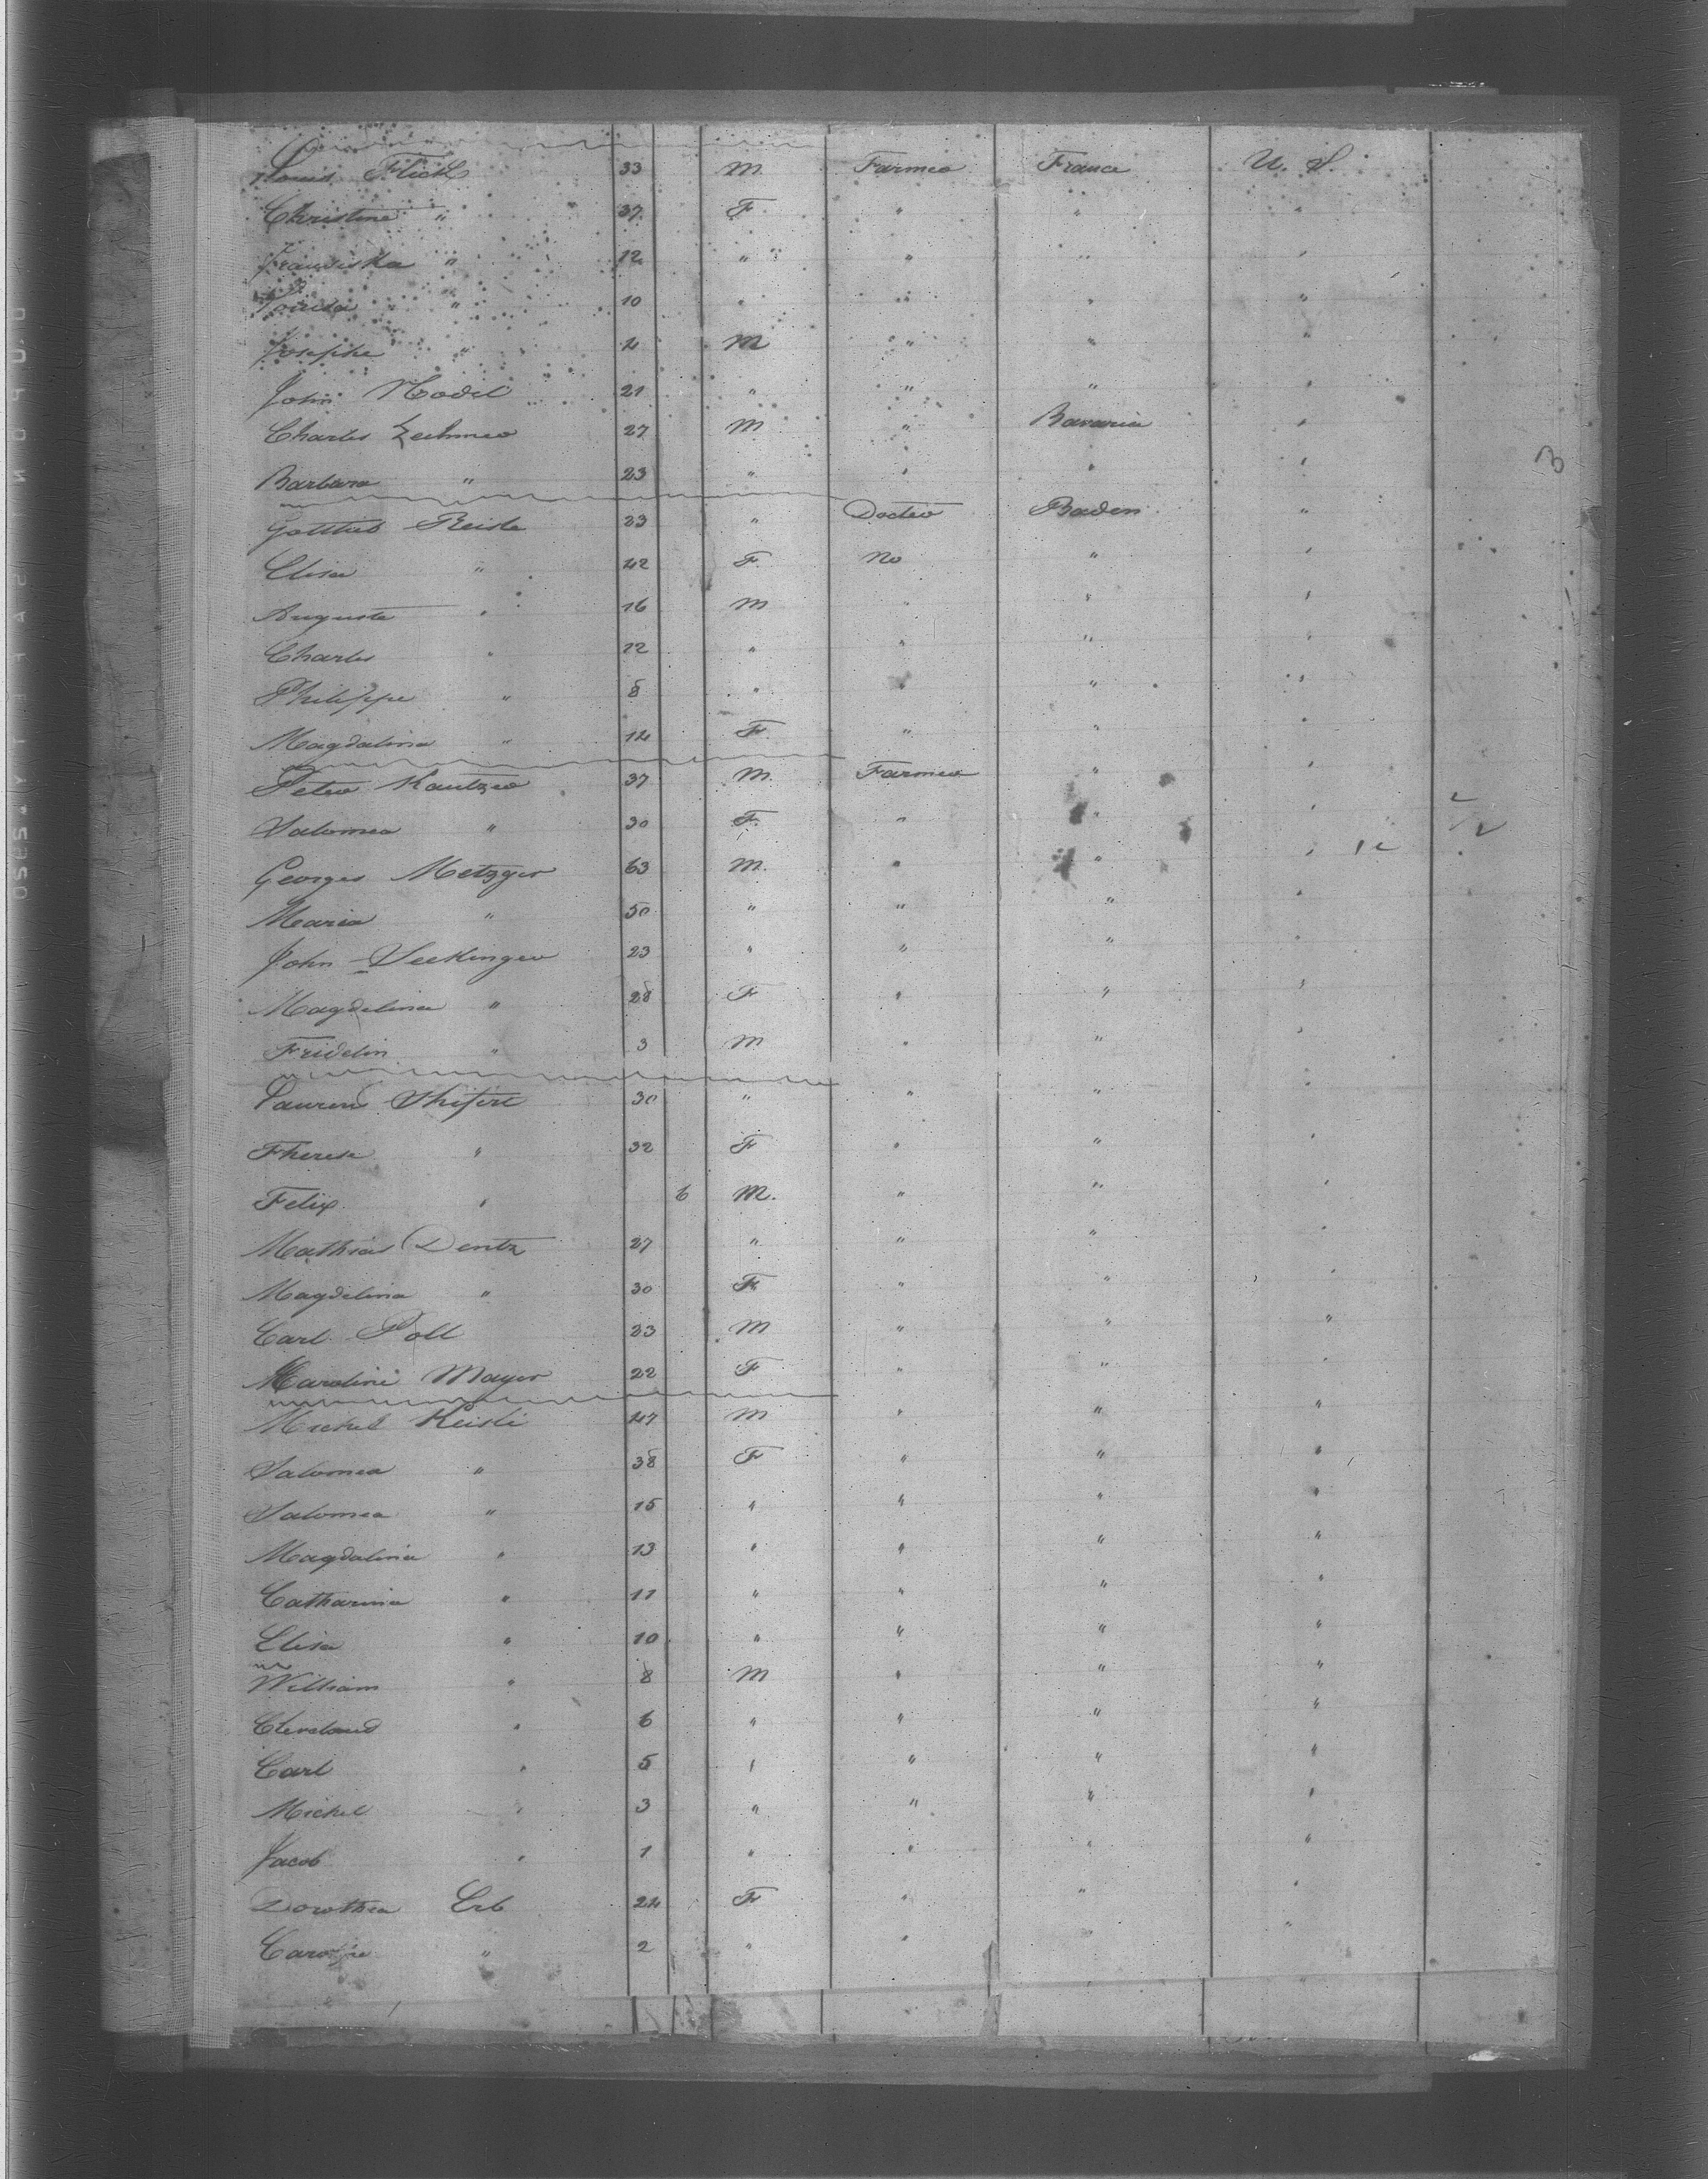 Louis Flick 33 M. Farmer France U. S.
Christine " 37 F. " " "
Franciska " 12 " " " "
Louisa " 10 " " " "
Josephe " 4 M " " "
John Model 21 " " " "
Charles Zechmer 27 M " Bavaria "
Barbara " 23 " " " "
Gottlieb Reisle 23 " Doctor Baden "
Elisa " 42 F. No " "
Auguste " 16 M " " "
Charles " 12 " " " "
Philippe " 8 " " " "
Magdalina " 14 F. " " "
Peter Kautzer 37 M. Farmer " "
Salomea " 30 F. " " "
Georges Metzger 63 M. " " "
Maria " 50 " " " "
John Seckinger 23 " " " "
Magdelina " 28 F " " "
Fridelin " 3 M " " "
Laurens 30 " " " "
Therese " 32 F " " "
Felix " 6 M. " " "
Mathias Dentz 27 " " " "
Magdelina " 30 F. " " "
Carl Poll 23 M " " "
Karoline Mayer 22 F " " "
Michel Keisli 47 M " " "
Salomea " 38 F " " "
Salomea " 15 " " " "
Magdalina " 13 " " " "
Catharina " 11 " " " "
Elisa " 10 " " " "
William " 8 M " " "
Cleveland " 6 " " " "
Carl " 5 " " " "
Michel " 3 " " " "
Jacob " 1 " " " "
Dorothea Erb 24 F " " "
Caroline " 2 " " " "